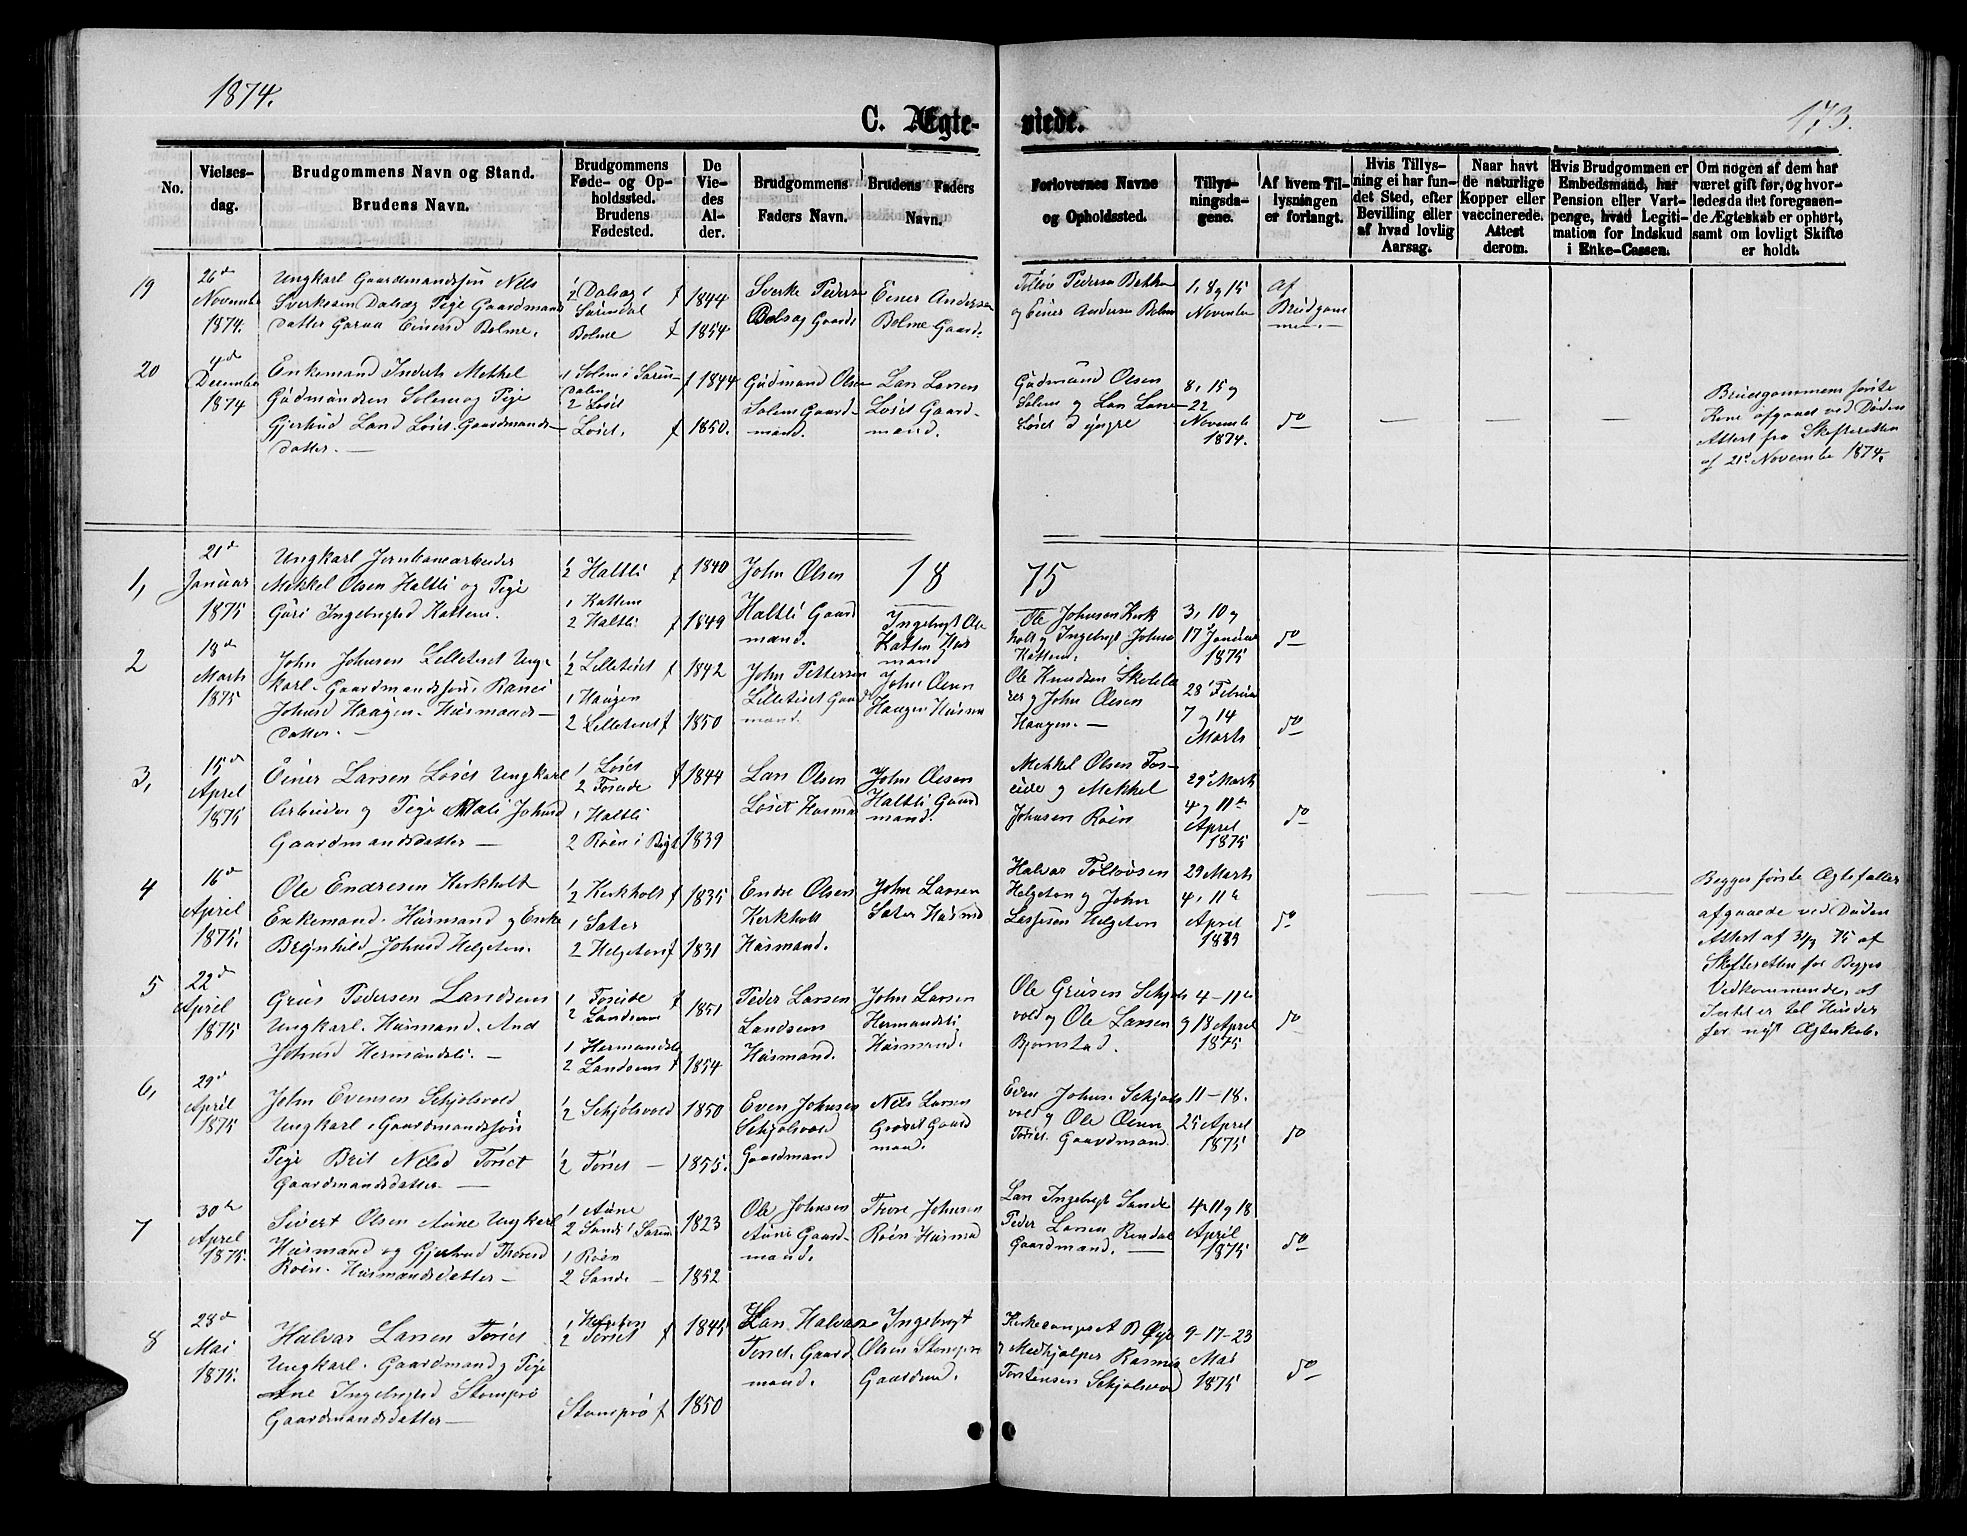 1874.
173.
C. Ægte-
viede.
No.
Vielses-
dag.
Brudgommens Navn og Stand.
Brudens Navn.
Brudgommens
Føde- og Op-
holdssted.
Brudens
Fødested.
De
Vie-
des
Al-
der.
Brudgommens
Faders Navn.
Brudens Faders
Navn.
Forlovernes Navne
og Opholdssted.
Tillys-
ningsda-
gene.
Af hvem Til-
lysningen
er forlangt.
Hvis Tillys-
ning ei har fun-
det Sted, efter
Bevilling eller
af hvad lovlig
Aarsag.
Naar havt
de naturlige
Kopper eller
vaccinerede.
Attest
derom.
Hvis Brudgommen er
Embedsmand, har
Pension eller Vart-
penge, hvad Legiti-
mation for Indskud
i Enke-Cassen.
Om nogen af dem har
været gift før, og hvor-
ledes da det foregaaen-
de Ægteskab er ophørt,
samt om lovligt Skifte
er holdt.
19
26de
November
1874.
Ungkarl Gaardmandssøn Nils
Sverkesen Dalsæg Pige Gaardmands
datter Einersd Bolme.
2 Dalsæg i
Surendal
Bolme
1844
1854
Sverke Pederse
Gaardm
Einer Andersen
Bolme Gaard
Pedersen
og Einer Andersen Bolme
1, 8 og 15
November
Af
Brudgom
men.
20
4de
December
1874
Enkemand Inderst Mekkel
Gudmundsen Solem og Pige
Gjertrud Løset Gaardmands-
datter.
1 Solem i Suren-
dalen
2 Løset
Løset.
1844
1850.
Gudmund Olsen
Solem Gaard-
mand.
Lars Larsen
Løset Gaard-
mand.
Gudmund Olsen
Solem og Lars Larsen
Løset d yngre
8, 15 og
22
November
1874.
do
Brudgommens første
Kone afgaaet ved Døden
Attest fra Skifteretten
af 21d November 1874.
18 75
1,
21de
Januar
1875
Ungkarl Jernbanearbeider
Mekkel Olsen Haltli og Pige
Guri Ingebrigtsd Kattem.
1/2 Haltli
1 Kattem
2 Haltli
1840
1849
John Olsen
Haltli Gaard
mand.
Ingebrigt Ole
Kattem Hus
mand
Ole Johnsen Kirk
holt og Ingebrigt Johnsen
Kattem.
3, 10 og
17d Januar
1875
do
2
18de
Marts
1875
John Johnsen Lilletiset Ung-
karl. Gaardmandssøn.
Johnsd Haugen. Husmands-
datter.
1/2 Lilletiset
1 Haugen
2 Lilletiset
1842
1850
John Pettersen
Lilletiset Gaard
mand.
John Olsen
Haugen Husm
Ole Knudsen Skolelæ
rer og John Olsen
Haugen.
28d Februar
7 og 14
Marts
do
3,
15de
April
1875
Einer Larsen Løset Ungkarl
Arbeider og Pige Mali Johnsd
Gaardmandsdatter
1 Løset
2 Foseide
1 Haltli
2 Røen i
1844
1839
Lars Olsen
Løset Husmd
John Olesen
Haltli Gaard
mand.
Mekkel Olsen Fos-
eide og Mekkel
Johnsen Røen
29d Marts
4 og 11te
April
1875
do
4
16de
April
1875.
Ole Endresen Kirkholt
Enkemand. Husmand og Enke
Brynhild Johnsd Helgeton.
1/2 Kirkholt
1 Sæter
2 Helgeton
1835
1831
Endre Olsen
Kirkholt
Husmand.
John Larsen
Sæter Husmd
Halvar
Helgeton og John
Helgeton
29 Marts
4, 11te
April
1875
do
Begges første Ægtefæller
afgaaede ved Døden
Attest af 75 af
Skifteretten for Begges
Vedkommende, at
Intet er til Hinder
for nyt Ægteskab.
5
22de
April
1875
Pedersen Landsem
Ungkarl. Husmand. And
Johnsd Hermundsli.
1 Foseide
2 Landsem
1 Hermundsli
2 Landsem
1851
1854
Peder Larsen
Landsem
Husmand.
John Larsen
Hermandsli
Husmand.
Ole Skjøls
vold og Ole Larsen
Bjørnstad.
4-11te
og 18 April
1875
do
6,
29de
April
1875
John Evensen Skjølsvold
Ungkarl, Gaardmandssøn
Pige Brit Nilsd Toriset
Gaardmandsdatter.
1/2 Skjølsvold
1/2 Toriset
1850
1855.
Even Johnsen
Skjølsvold
Gaardmand
Nils Larsen
Gaard
mand.
Even Johns. Skjøls
vold og Ole Olsen
Toriset. Gaardmand.
11-18.
25 April
1875
do
7
30te
April
1875.
Sivert Olsen Aune Ungkarl
Husmand og Gjertrud Thoresd
Røen. Husmandsdatter
1 Aune
2 Sande i Suren
1 Røen
2 Sande
1823
1852
Ole Johnsen
Aune Gaard-
mand.
Thore Johnsen
Røen Husmd
Lars Ingebrigt Sande
Peder Larsen Rendal
Gaardmand.
4-11 og 18
April
1875
do
8
28de
Mai
1875.
Halvar Larsen Toriset
Ungkarl. Gaardmand og Pige
Ane Ingebrigtsd Stomprø
Gaardmandsdatter
1 Helgeton
2 Toriset
Stomprø
1845
1850
Lars Halvarse
Toriset. Gaard
mand.
Ingebrigt
Olsen Stomprø
Gaardmd.
Kirkesanger A B Øye
og Medhjælper Rasmus
Torstensen Skjølsvold
9-17-23
Mai
1875
do